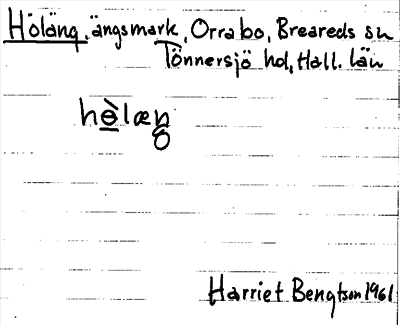 Höläng, ängsmark, Orrabo, Breareds sn
Tönnersjö hd, Hall. län
hɵ̠̀læŋ
Harriet Bengtson 1961